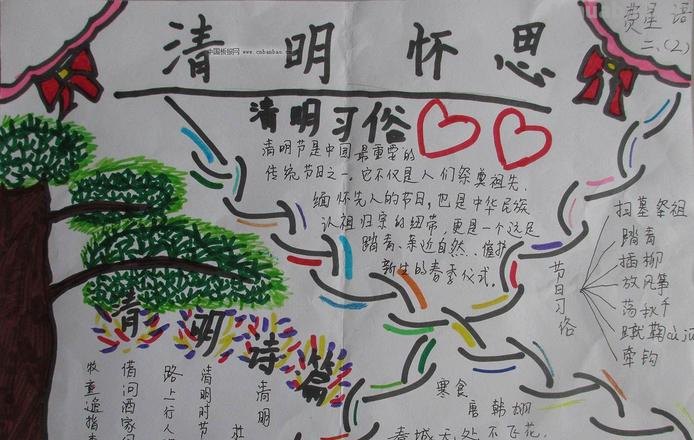 清明怀思
中国板报网 www.cnbanbao.com
费星语
二、(2)
清明习俗
清明节是中国最重要的
传统节日之一。它不仅是人们祭奠祖先、
缅怀先人的节日,也是中华民族
认祖归宗的纽带,更是一个远足
踏青、亲近自然、催护
新生的春季仪式。
节日习俗
扫墓祭祖
踏青
插柳
放风筝
荡秋千
蹴鞠
牵钩
清明诗篇
清明
清明时节
路上行人
借问酒家
牧童遥指
寒食
唐 韩翃
春城无处不飞花,